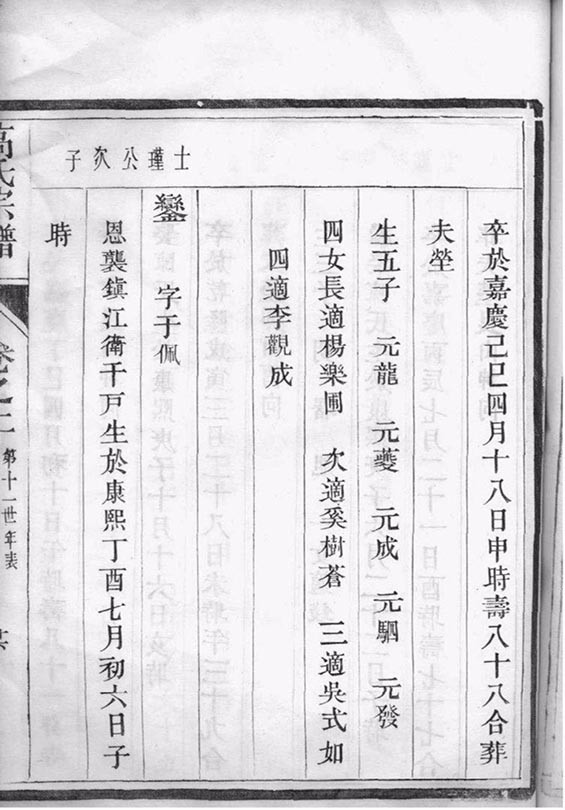 卒於嘉慶己巳四月十八日申時壽八十八合葬
夫塋
生五子 元龍 元夔 元成 元駟 元發
四女長適楊樂圃 次適奚樹蒼 三適吳式如
四適李觀成
士瑾公次子
鑾 字于佩
恩襲鎮江衛千戸生於康熙丁酉七月初六日子
時
高氏宗譜
卷之二
第十一世年表